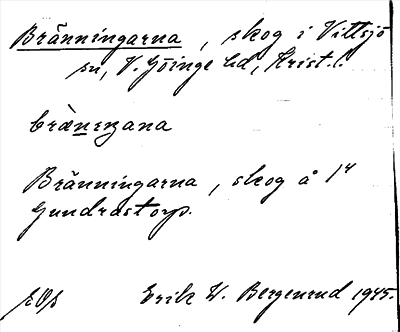 Bränningarna, skog i Vittsjö
sn, V. Göinge hd, Krist. l.
Bränningarna, skog å 1⁴
Gundrastorp.
Erik W. Bergenrud 1945.